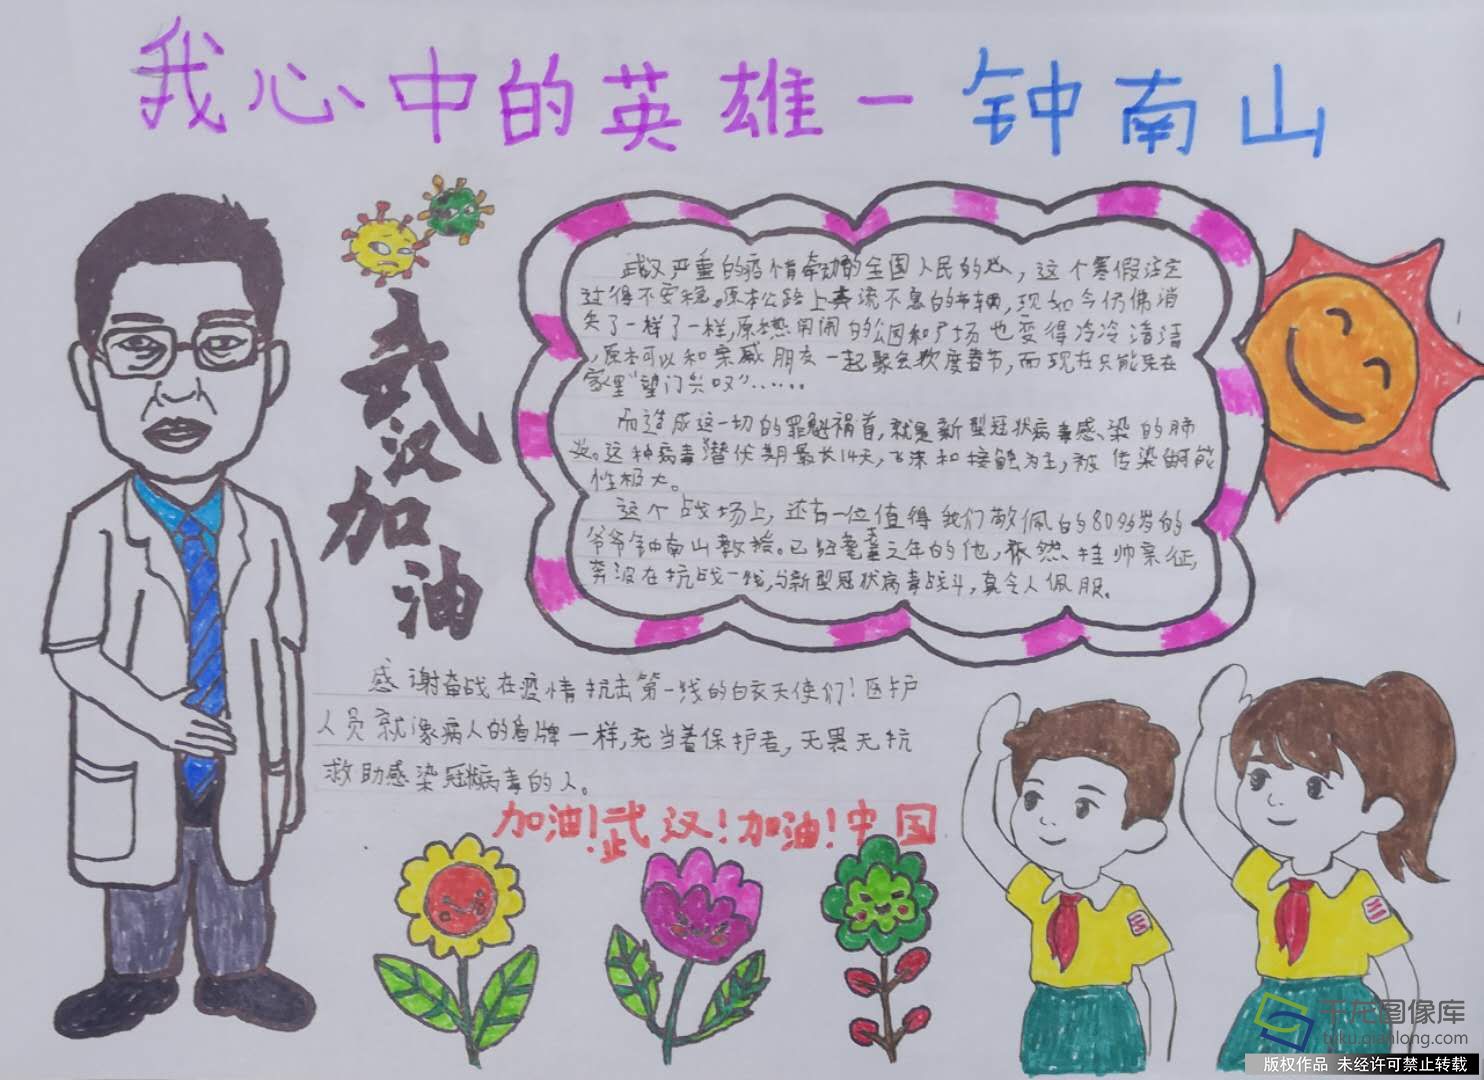 我心中的英雄一钟南山
武汉加油
武汉严重的疫情牵动的全国人民的心，这个寒假注定
过得不安稳。原本公路上奔流不息的车辆，现如今仿佛消
失了一样了一样，原本热闹的公园和广场也变得冷冷清清
，原本可以和亲戚朋友一起聚会欢度春节，而现在只能呆在
家里“望门兴叹”……
而造成这一切的罪魁祸首，就是新型冠状病毒感染的肺
炎。这种病毒潜伏期最长14天，飞沫和接触为主，被传染的可能
性极大。
这个战场上，还有一位值得我们敬佩的80多岁的
爷爷钟南山教授。已经耄耋之年的他，依然挂帅亲征，
奔波在抗战一线，与新型冠状病毒战斗，真令人佩服。
感谢奋战在疫情抗击第一线的白衣天使们！医护
人员就像病人的盾牌一样，充当着保护者，无畏无抗
救助感染冠状病毒的人。
加油！武汉！加油！中国
千龙图像库
tuku.qianlong.com
版权作品 未经许可禁止转载